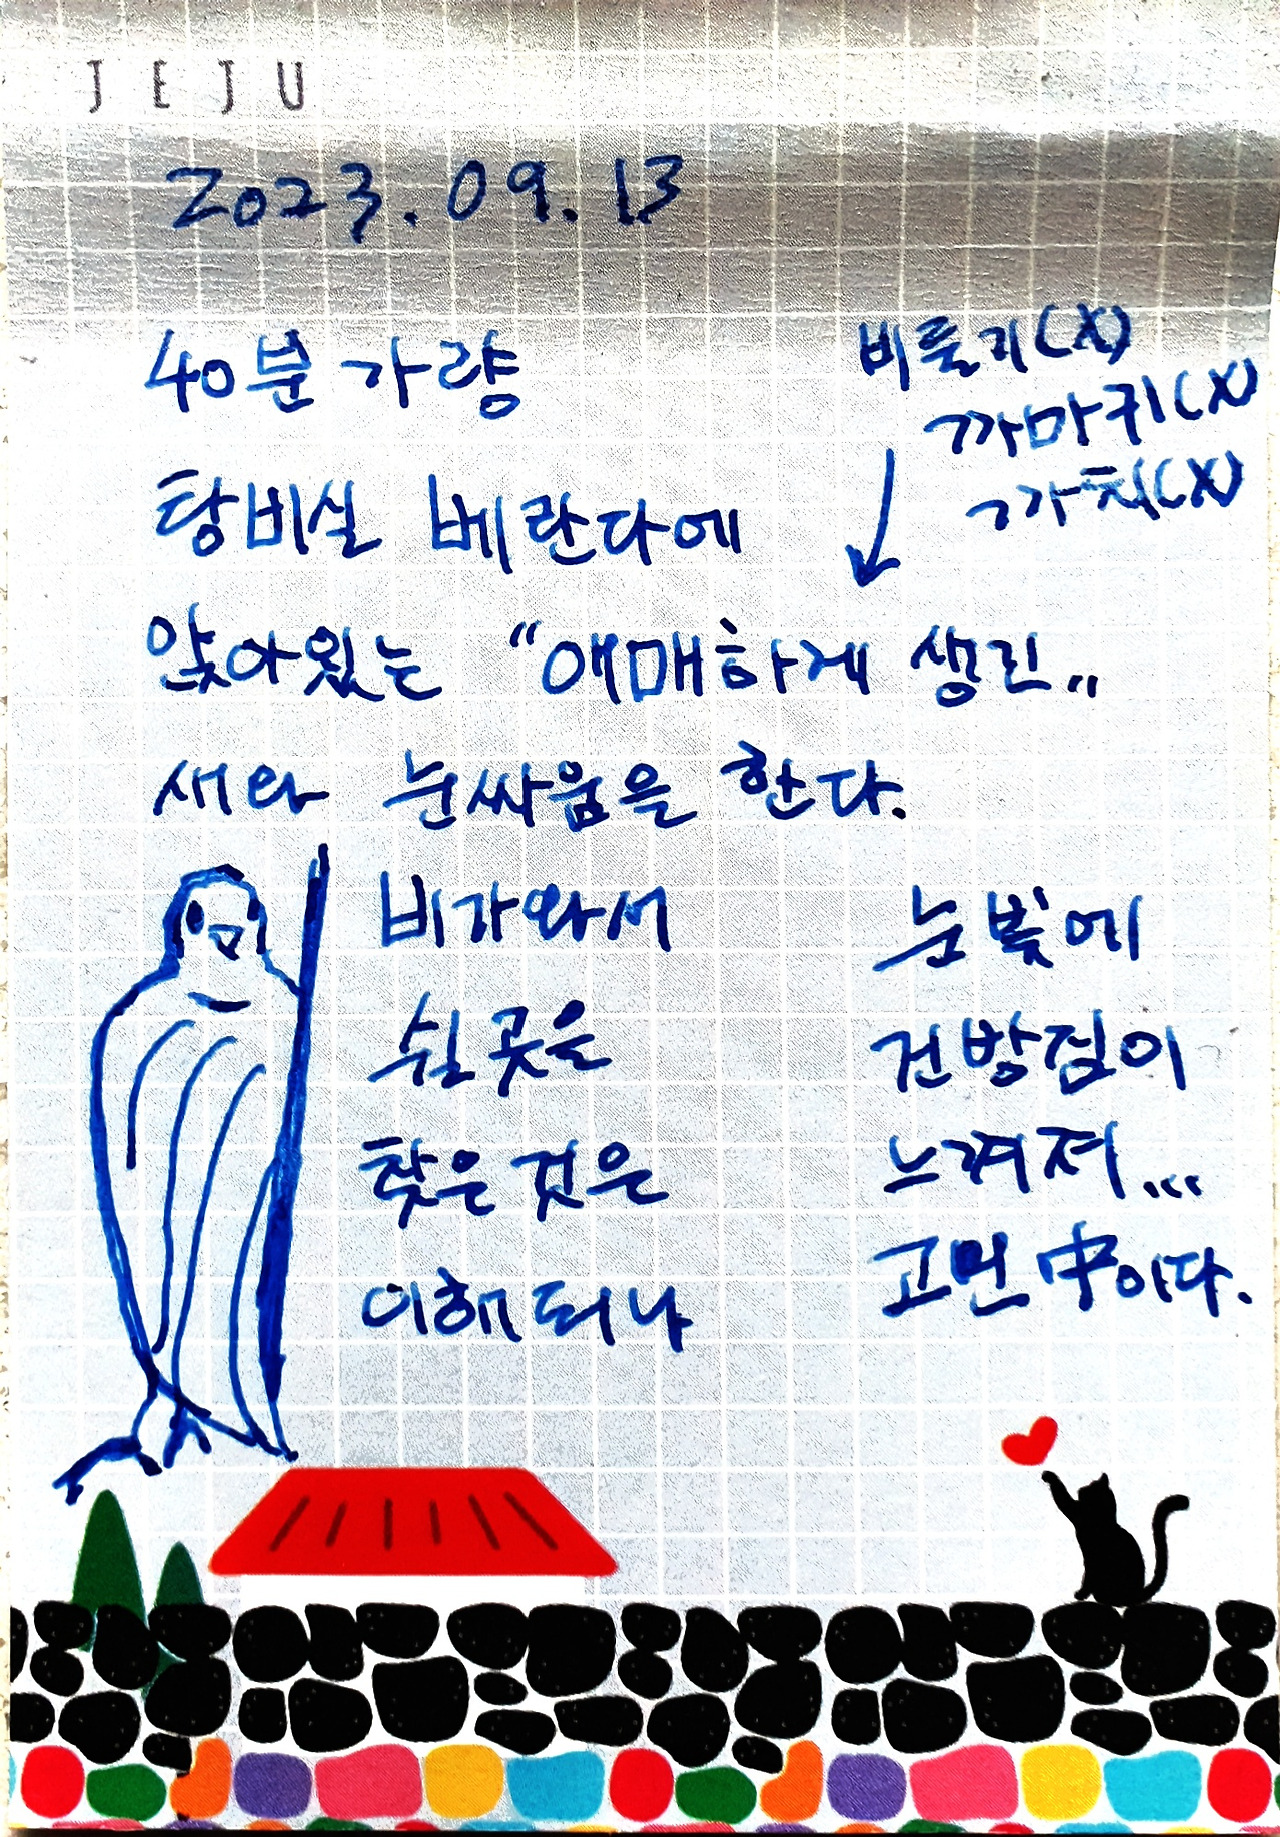 JEJU
2023.09.13
40분 가량
비둘기(X)
까마귀(X)
까치(X)
탕비실 베란다에
앉아있는 "애매하게 생긴"
새와 눈싸움을 한다.
비가와서
쉴 곳을
찾은 것은
이해되나
눈빛에
건방짐이
느껴져...
고민 中이다.